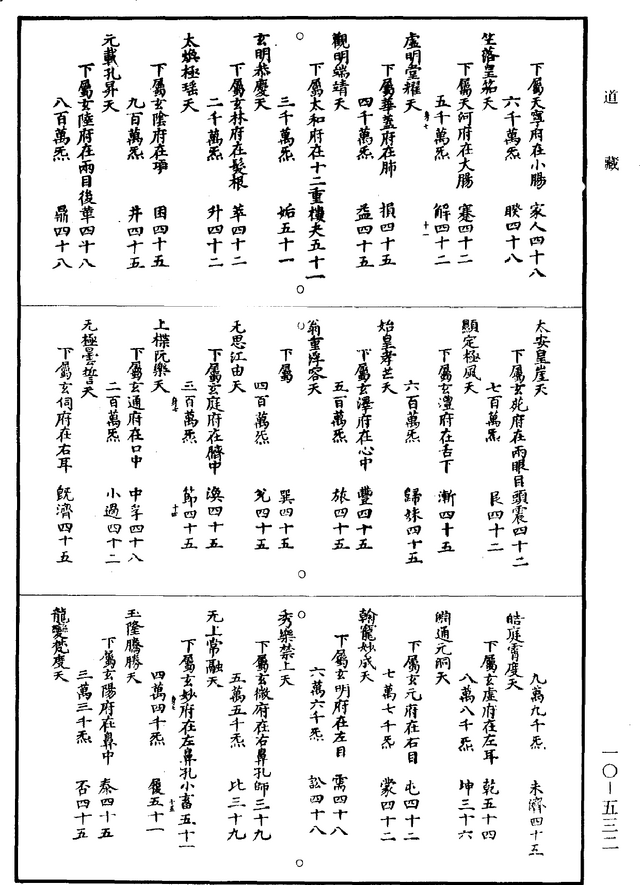 道藏
下屬天宰府在小腸 家人四十八
六千萬炁 睽四十八
笁落皇笳天
下屬天河府在大腸 蹇四十二
五千萬炁 解四十二
虛明堂耀天
下屬華蓋府在肺 損四十五
四千萬炁 益四十五
觀明端靖天
下屬太和府在十二重樓夬五十一
三千萬炁 姤五十一
玄明恭慶天
下屬玄林府在髮根 萃四十二
二千萬炁 升四十二
太煥極瑤天
下屬玄陰府在 困四十五
九百萬炁 井四十五
元載孔昇天
下屬玄陸府在兩目後革四十八
八百萬炁 鼎四十八
太安皇崖天
下屬玄 府在兩眼目頭震四十二
七百萬炁 艮四十二
顯定極風天
下屬玄澧府在舌下 漸四十五
六百萬炁 歸妹四十五
始皇孝芒天
下屬玄澤府在心中 豐四十五
五百萬炁 旅四十五
翁重浮容天
下屬 巽四十五
四百萬炁 兌四十五
无思江由天
下屬玄庭府在臍中 渙四十五
三百萬炁 節四十五
上楪阮樂天
下屬玄通府在口中 中孚四十八
二百萬炁 小過四十二
无極曇誓天
下屬玄伺府在右耳 既濟四十五
九萬九千炁 未濟四十五
皓庭霄度天
下屬玄虛府在左耳 乾五十四
八萬八千炁 坤三十六
淵通元洞天
下屬玄元府在右目 屯四十二
七萬七千炁 蒙四十二
翰寵妙成天
下屬玄明府在左目 需四十八
六萬六千炁 訟四十八
秀樂禁上天
下屬玄微府在右鼻孔師三十九
五萬五千炁 比三十九
无上常融天
下屬玄妙府在左鼻孔小畜五十一
四萬四千炁 履五十一
玉隆騰勝天
下屬玄陽府在鼻中 泰四十五
三萬三千炁 否四十五
龍變梵度天
一〇－五三二